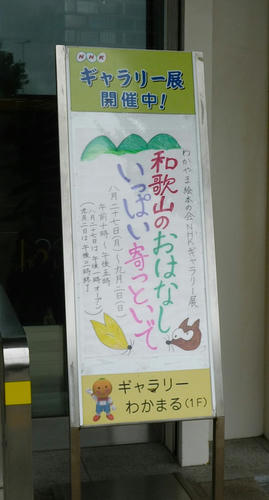 NHK
ギャラリー展
開催中!
わかやま絵本の会 NHKギャラリー展
和歌山のおはなし
いっぱい寄っといで
八月二十七日(月)〜九月二日(日)
午前十時〜午後五時
(八月二十七日は午後一時オープン
九月二日は午後三時終了)
ギャラリー
わかまる(1F)